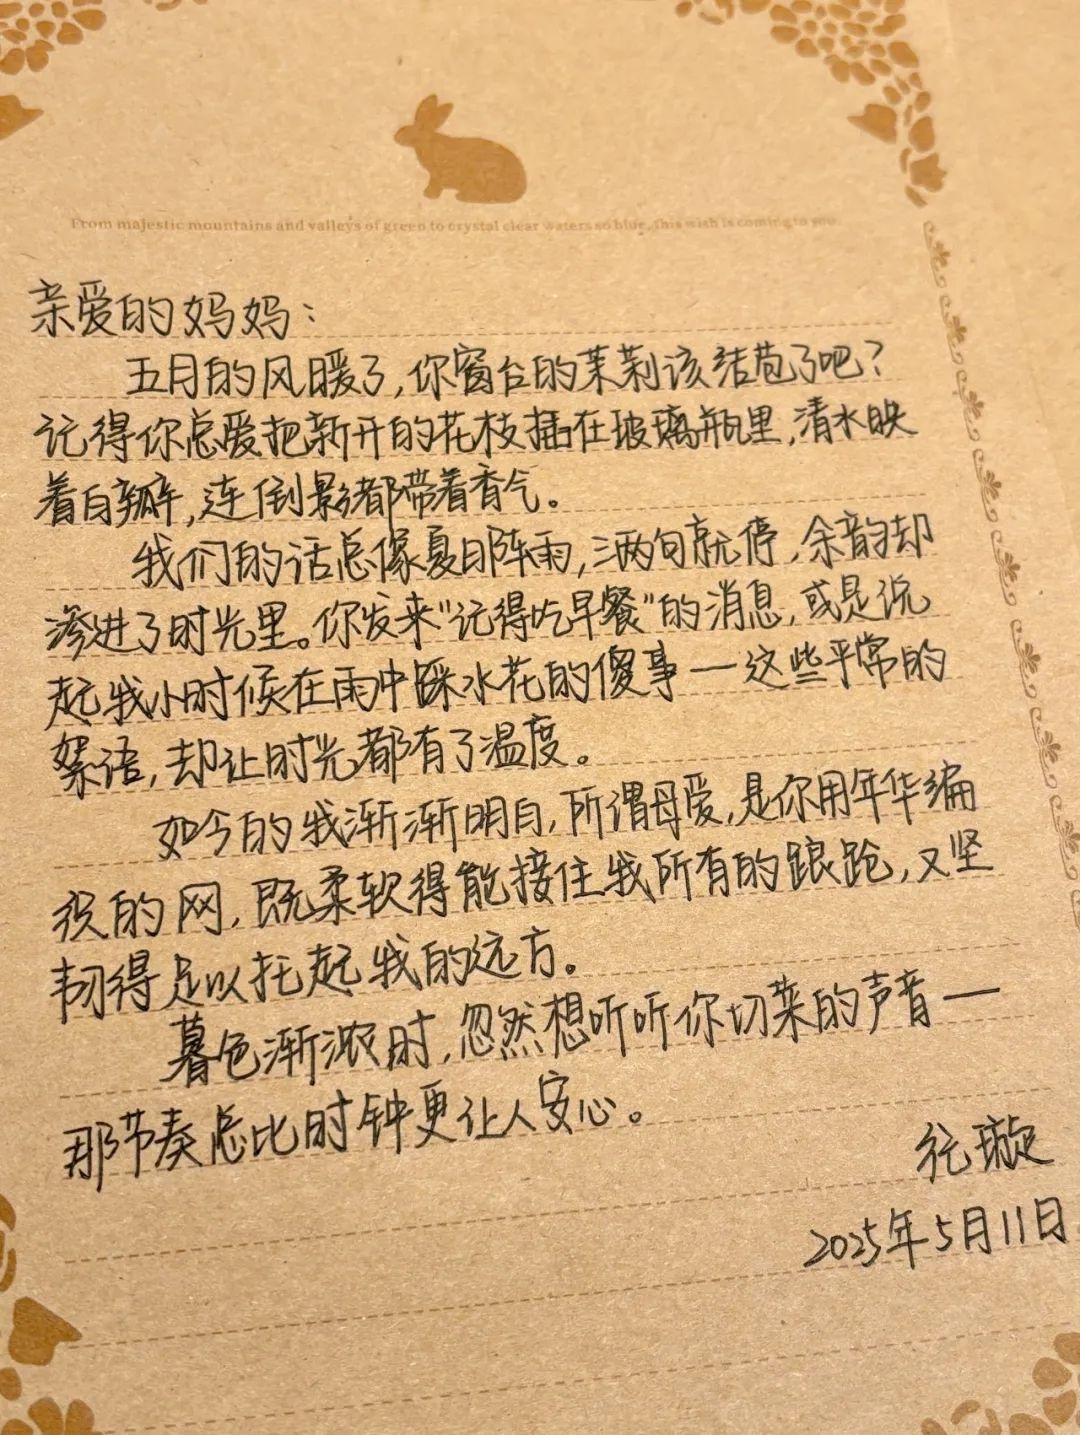 From majestic mountains and valleys of green to crystal clear waters so blue, this wish is coming to you.
亲爱的妈妈：
五月的风暖了，你窗台的茉莉该结苞了吧？
记得你总爱把新开的花枝插在玻璃瓶里，清水映
着白瓣，连倒影都带着香气。
我们的话总像夏日阵雨，三两句就停，余韵却
渗进了时光里。你发来“记得吃早餐”的消息，或是说
起我小时候在雨中踩水花的傻事—这些平常的
絮语，却让时光都有了温度。
如今的我渐渐明白，所谓母爱，是你用年华编
织的网，既柔软得能接住我所有的踉跄，又坚
韧得足以托起我的远方。
暮色渐浓时，忽然想听听你切菜的声音—
那节奏总比时钟更让人安心。
璇
2025年5月11日